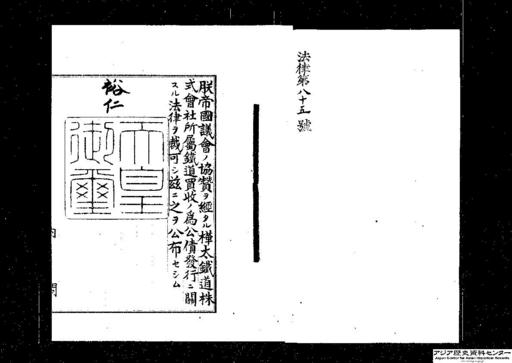 法律第八十五號
朕帝國議會ノ協贊ヲ經タル樺太鐵道株
式會社所屬鐵道買收ノ爲公債發行ニ關
スル法律ヲ裁可シ茲ニ之ヲ公布セシム
裕仁
天皇
御璽
内閣
アジア歴史資料センター
Japan Center for Asian Historical Records